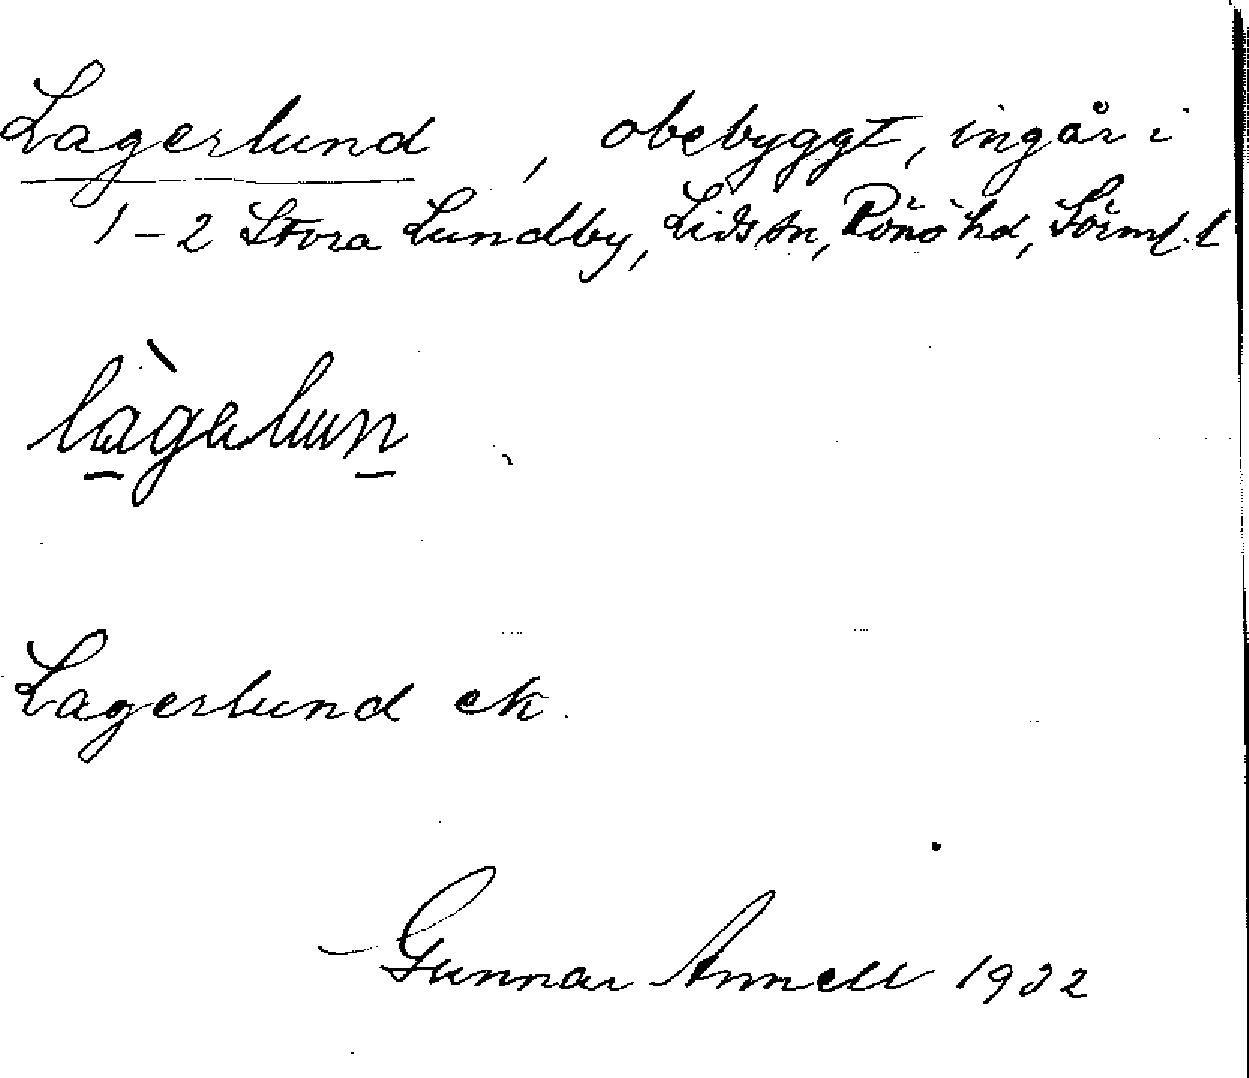 Lagerlund, obebyggt, ingår i
1-2 Stora Lundby, Lids sn, Rönö hd, Sörml. l
làgelun
Lagerlund ek.
Gunnar Annell 1932